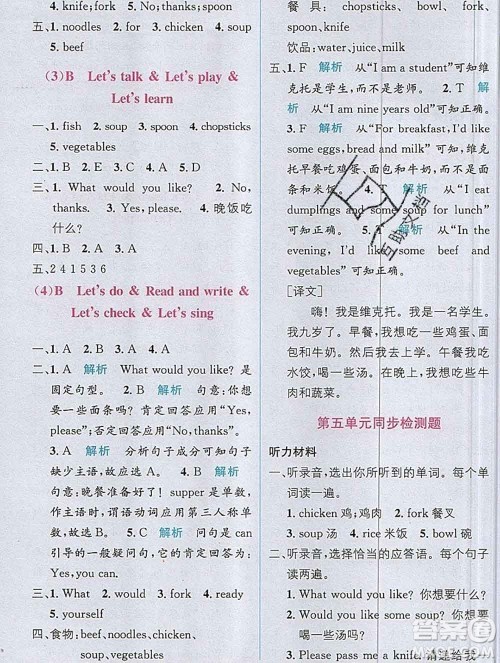 poon 4. knife; fork 5. No;thanks;spoon
五、1. noodles 2. beef 3. fork 4. soup
5. beef
(3)B Let's talk & Let's play &
Let's learn
一、1. fish 2. soup 3. spoon 4. chopsticks
5. vegetables
二、1. B 2. E 3. A 4. D 5. C
三、1. What would you like? 2. No,
thanks. 3. Yes,please. 4. 晚饭吃
什么?
四、1. B 2. A 3. A
五、2 4 1 5 3 6
(4)B Let's do & Read and write &
Let's check & Let's sing
一、1. A 2. B 3. A 4. A
二、1. A 解析 What would you like? 是
固定句型。 2. B 解析 句意:你想
吃一些面条吗?肯定回答应用“Yes,
please”;否定回答应用“No,thanks”。
3. A 解析 分析句子成分可知句子
缺少主语,故应选A。 4. B 解析
句意:晚餐准备好了! supper 是单数,
作主语时,谓语动词应用第三人称单
数,故选 B。 5. C 解析 问句是 can
引导的一般疑问句,它的肯定回答为:
Yes,you can. 否定回答为:No,you
can't.
三、1. would 2. have 3. to 4. ready
5. yourself
四、食物:beef,noodles,chicken,
soup,vegetables
餐具:chopsticks, bowl, fork,
spoon, knife
饮品:water,juice,milk
五、1. F 解析 从“I am a student”可知维
克托是学生,而不是老师。 2. T 解
析 从“I am nine years old”可知正确。
3. F 解析 从“For breakfast,I'd like
some eggs, bread and milk”可知,维
克托早餐吃鸡蛋、面包和牛奶,而不是面
条和米饭。 4. T 解析 从“I eat
dumplings and some soup for lunch”可
知正确。 5. T 解析 从“In the
evening,I'd like some beef and some
vegetables”可知正确。
[译文]
嗨!我是维克托。我是一名学生。
我九岁了。早餐,我想吃一些鸡蛋、面
包和牛奶。我喜欢牛奶。午餐我吃
水饺,喝一些汤。在晚上,我想吃牛肉
和蔬菜。
第五单元同步检测题
听力材料
一、听录音,选出你所听到的单词。每个单
词读一遍。
1. chicken 鸡;鸡肉 2. fork 餐叉
3. soup 汤 4. rice 米饭 5. bowl 碗
二、听录音,选择恰当的应答语。每个句子
读两遍。
1. What would you like? 你想要什么?
2. Would you like some soup? 你想喝
3. Please pass me a knife.